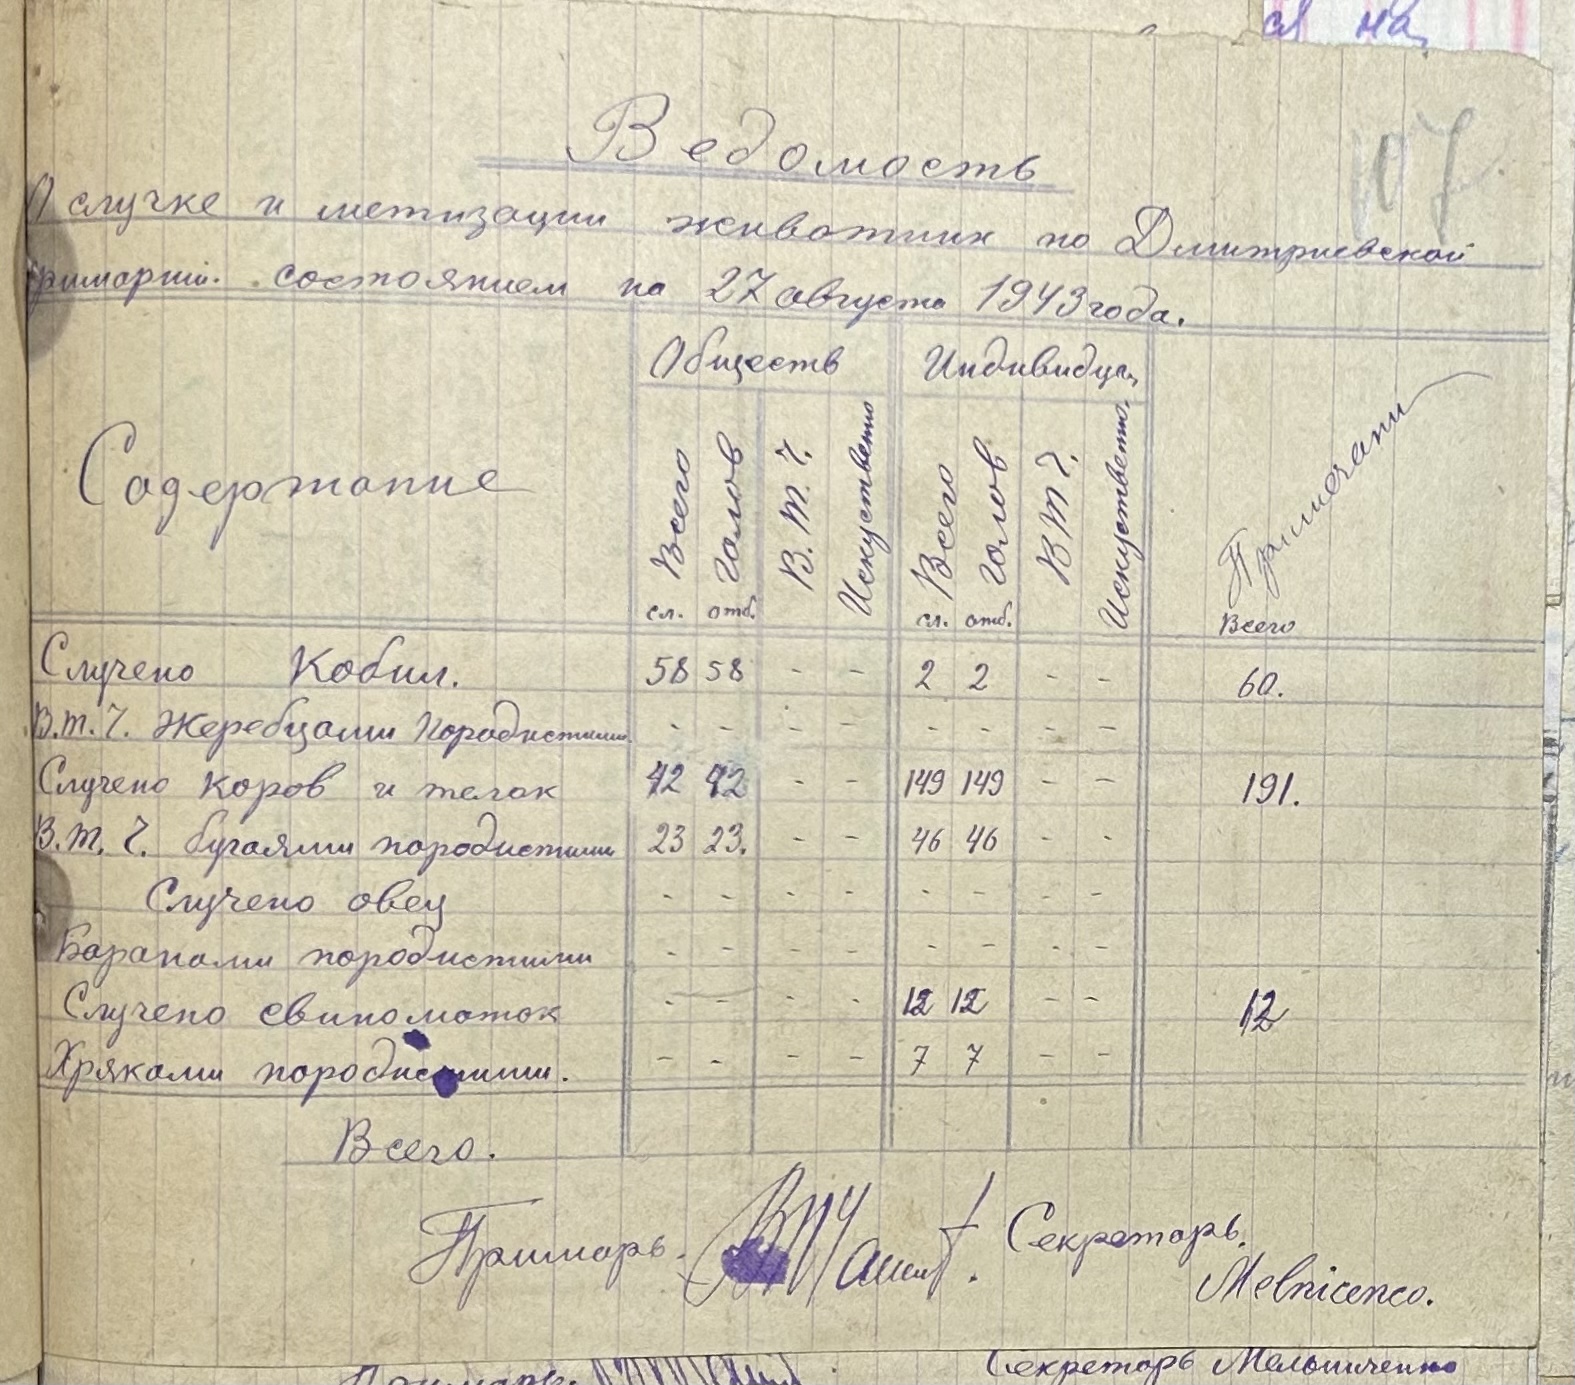 ся на
107
Ведомость
О случке и метизации животних по Дмитриевской
примарии. состоянием на 27 августа 1943 года.
Содержание
Обществ
Индивидуал.
Примечани
Всего голов
В. т. ч.
Искуственно
Всего голов
В т ч.
Искуственно.
сл. отб. сл. отб. Всего
Случено Кобил. 58 58 - - 2 2 - - 60.
В.т.ч. Жеребцами Породистими - - - - - - - -
Случено коров и телок 42 42 - - 149 149 - - 191.
В.т.ч. бугаями породистими 23 23. - - 46 46 - -
Случено овец - - - - - - - -
Баранами породистими - - - - - - - -
Случено свиноматок - - - - 12 12 - - 12
Хряками породистими. - - - - 7 7 - -
Всего.
Примарь. Секретарь.
Melnicenco.
Примарь. Секретарь Мельниченко